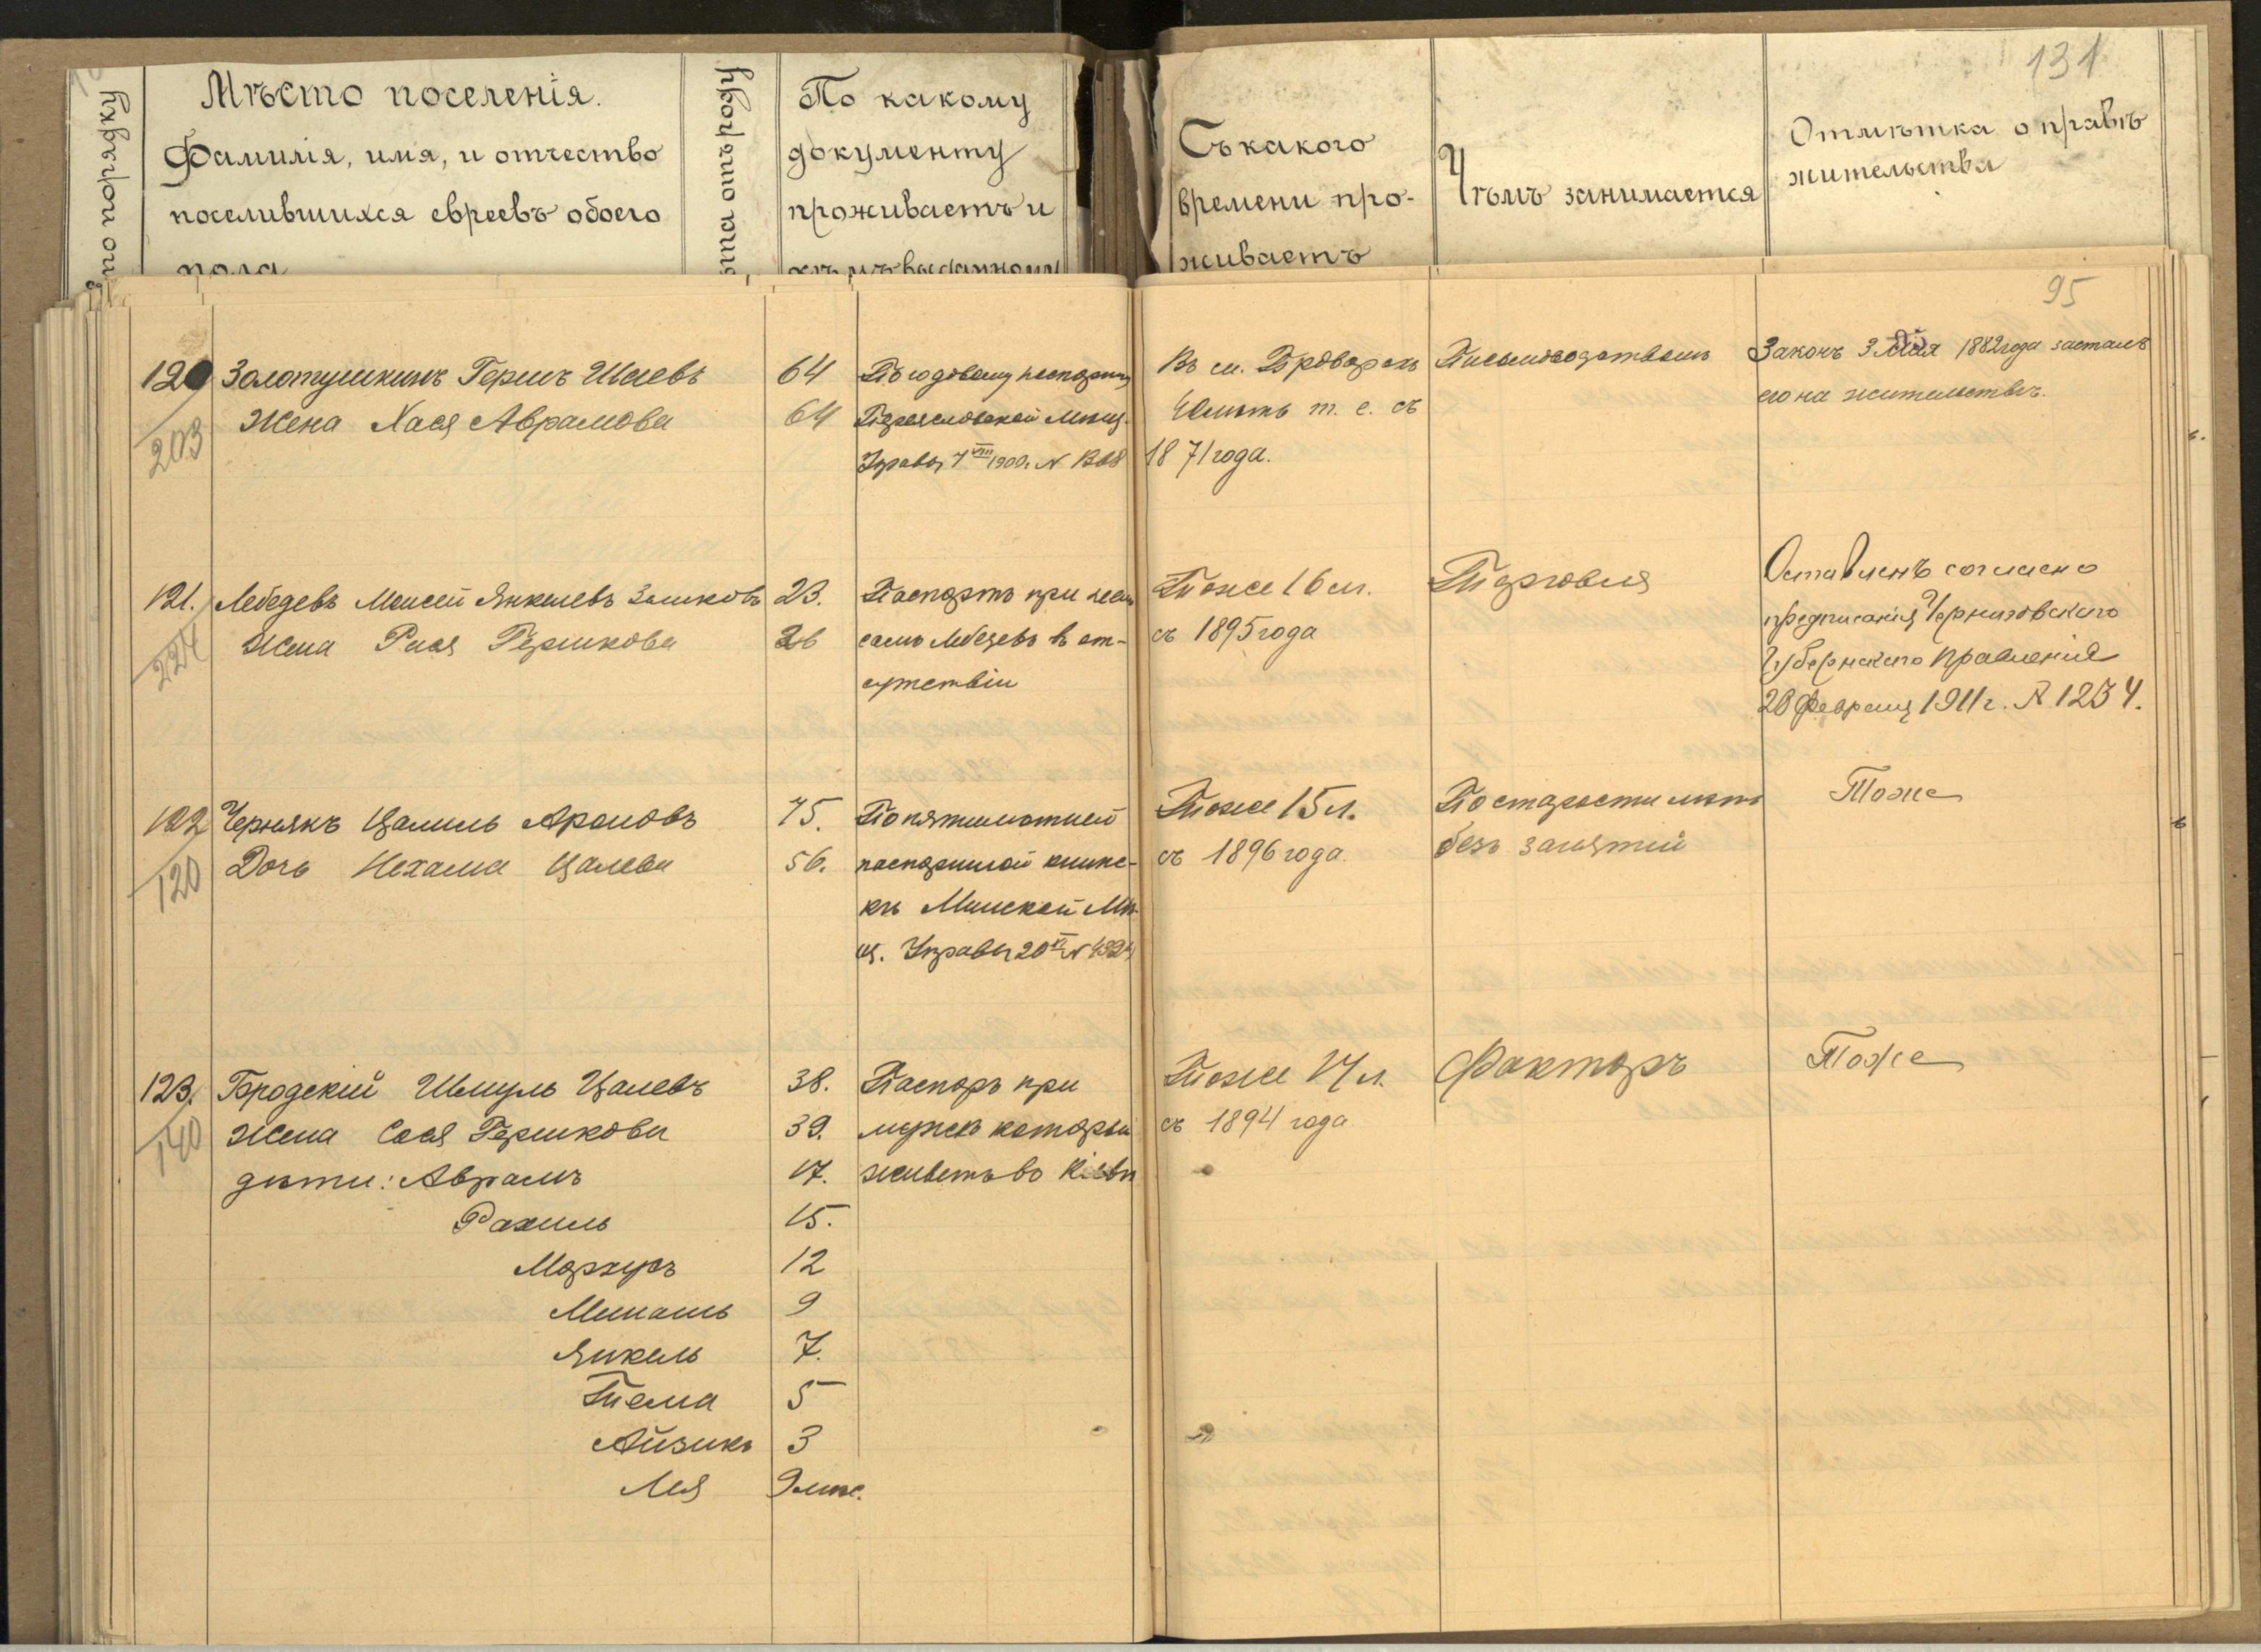 131
№ по порядку
Мѣсто поселенія.
Фамилія, имя, и отчество
поселившихся евреевъ обоего
пола
отъ роду
По какому
документу
проживаетъ и
кѣмъ выданному
Съ какого
времени про-
живаетъ
Чѣмъ занимается
Отмѣтка о правѣ
жительства
95
120 Золотушкинъ Гершъ Шаевъ 64 По годовому паспорту Въ м. Броварахъ Письмоводствомъ Законъ 3 Мая 1882 года засталъ
203 Жена Хася Аврамова 64 Переяславской Мѣщ. т. е. съ его на жительствѣ.
Управы 7 VIII 1900. № 1871 года.
121. Лебедевъ Моисей Янкелевъ 23. Паспортъ при Тоже 16 л. Торговля Оставленъ согласно
224 Жена Рися Гершкова 26 самъ Лебедевъ въ от- съ 1895 года предписанія Черниговскаго
сутствіи Губернскаго Правленія
28 Февраля 1911 г. № 1234.
122 Чернякъ Цалель Ароновъ 75. По пятилѣтней Тоже 15 л. По старости лѣтъ Тоже
120 Дочь Нехама Цалева 56. паспортной книж- съ 1896 года. безъ занятій
кѣ Минской Мѣ-
щ. Управы 20
123. Бродскій Шмуль Цалевъ 38. Паспорь при Тоже 17 л. Факторъ Тоже
140 Жена Сося Гершкова 39. мужѣ который съ 1894 года
дѣти: Аврамъ 17. живетъ во Кіевѣ
Рахиль 15.
Маркусъ 12
9
Янкель 7.
Тема 5
Айзикъ 3
Лея 9 мѣс.